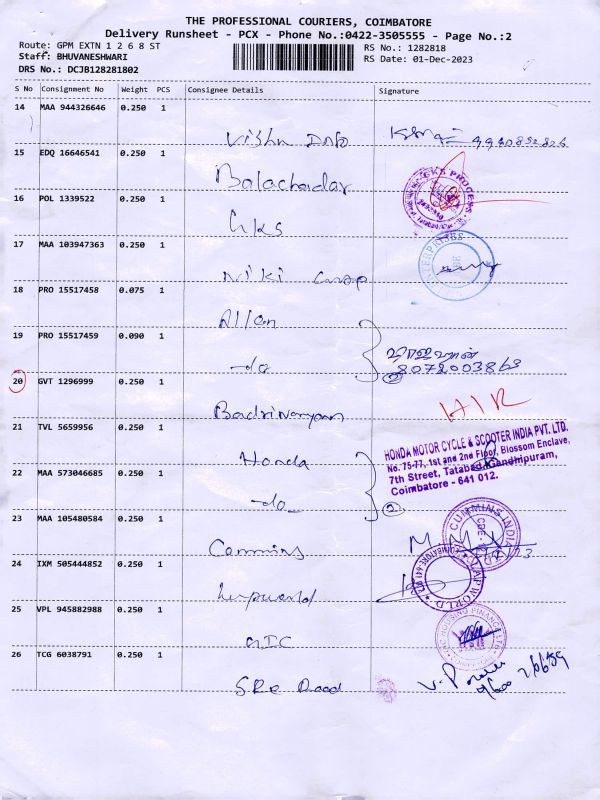 THE PROFESSIONAL COURIERS, COIMBATORE
Delivery Runsheet - PCX - Phone No.:0422-3505555 - Page No.:2
Route: GPM EXTN 1 2 6 8 ST
RS No.: 1282818
Staff: BHUVANESHWARI
RS Date: 01-Dec-2023
DRS No.: DCJB128281802
S No Consignment No Weight PCS Consignee Details Signature
14 MAA 944326646 0.250 1
Vishu Info
15 EDQ 16646541 0.250 1
Balachadar
16 POL 1339522 0.250 1
GKS
17 MAA 103947363 0.250 1
Niki
18 PRO 15517458 0.075 1
Allen
19 PRO 15517459 0.090 1
-do
8072003868
20 GVT 1296999 0.250 1
Badrinarayan
21 TVL 5659956 0.250 1
Honda
HONDA MOTOR CYCLE & SCOOTER INDIA PVT. LTD.
No. 75-77, 1st and 2nd Floor, Blossom Enclave,
7th Street, Tatabad, Gandhipuram,
Coimbatore - 641 012.
22 MAA 573046685 0.250 1
-do-
2
23 MAA 105480584 0.250 1
Cummins
CUMMINS INDIA
24 IXM 505444852 0.250 1
25 VPL 945882988 0.250 1
HOUSING FINANCE LTD
26 TCG 6038791 0.250 1